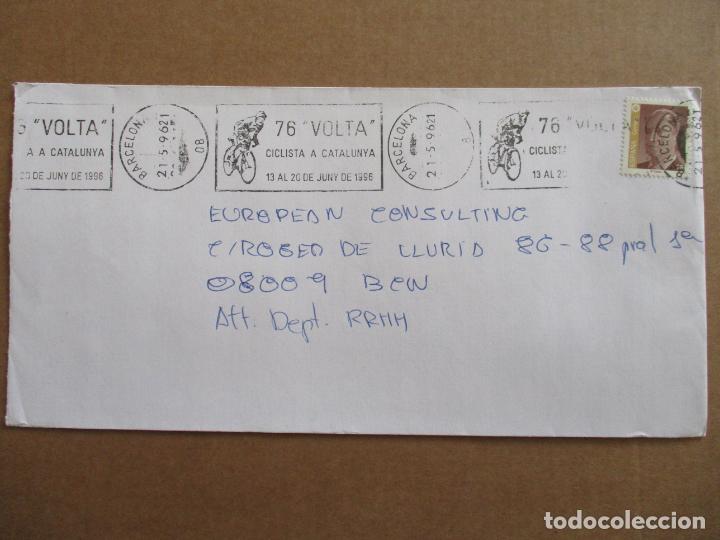 6 "VOLTA"
A A CATALUNYA
20 DE JUNY DE 1996
BARCELONA
21-5-9621
08
76 "VOLTA"
CICLISTA A CATALUNYA
13 AL 20 DE JUNY DE 1996
BARCELONA
21-5-9621
8
76 "VOLTA
CICLIST
13 AL 20
EUROPEAN CONSULTING
C/ROGER DE LLURIA 86-88 pral 1ª
08009 BCN
Att. Dept. RRHH
todocoleccion.net